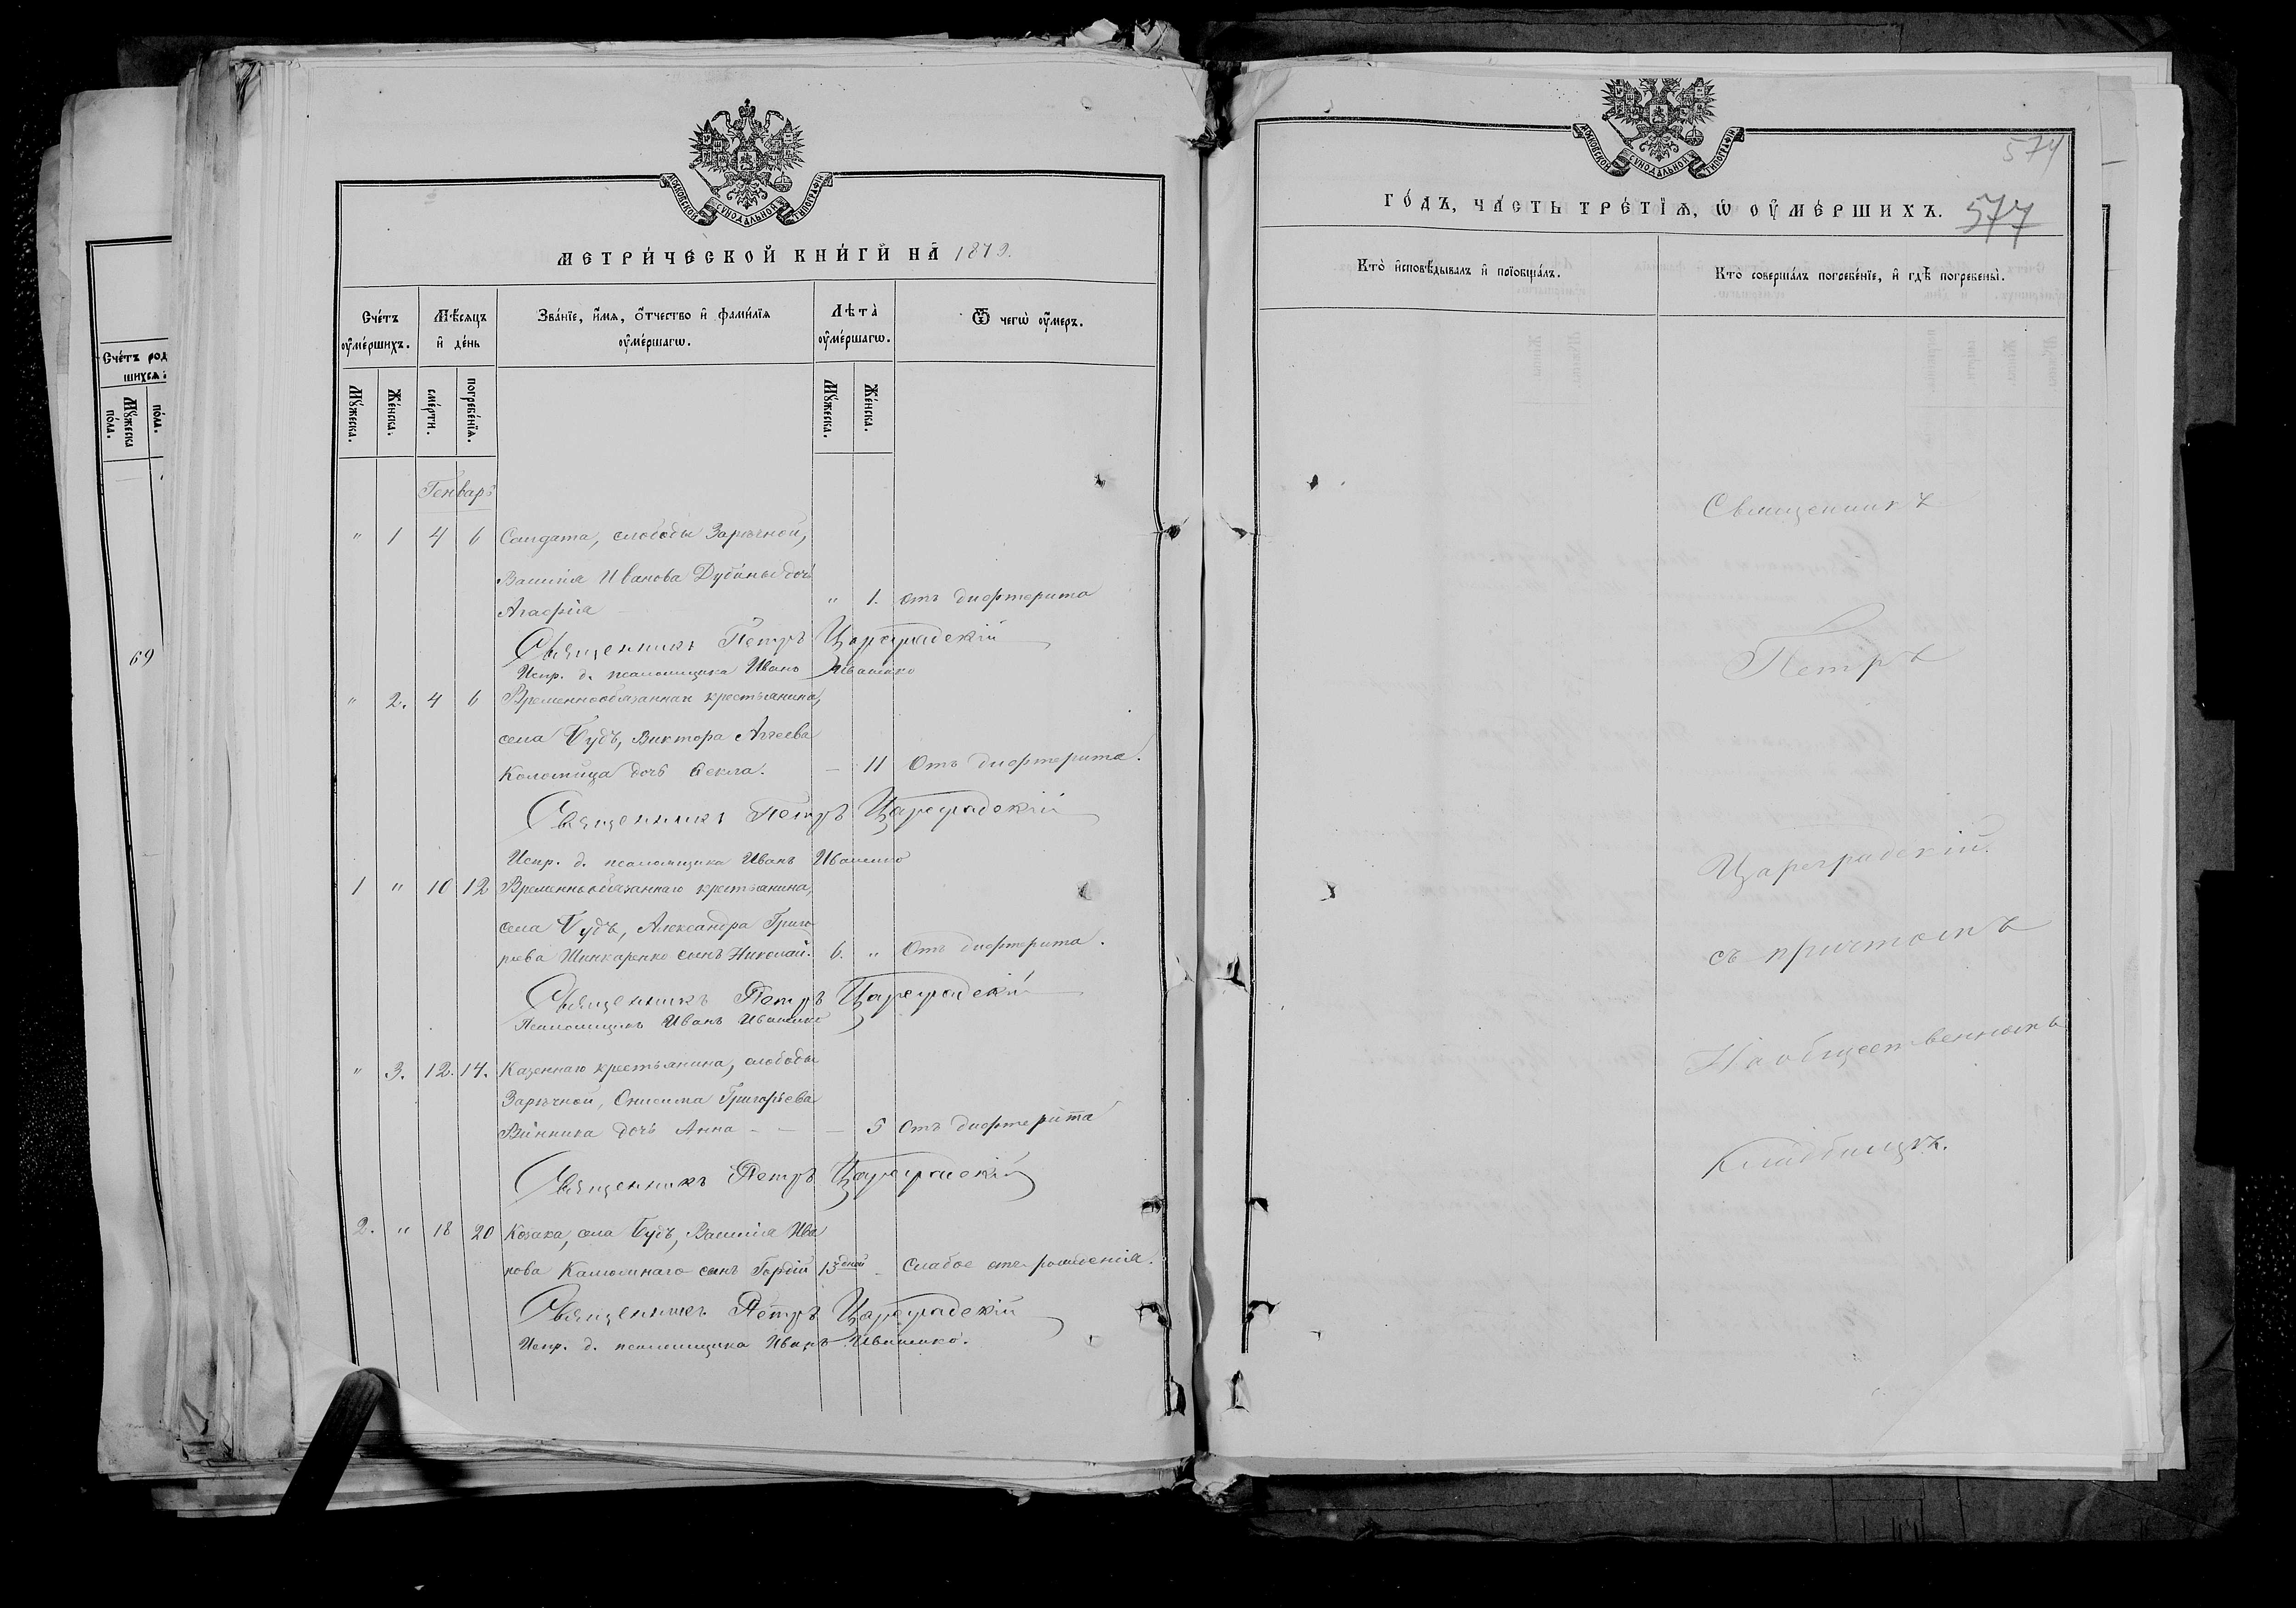 Счетъ род
шихся
Мужеска
пола.
пола.
69
МОСКОВСКОЙ СѴНОДАЛЬНОЙ ТИПОГРАФІИ
МЕТРИЧЕСКОЙ КНИГИ НА 1879.
Счетъ умершихъ.
Мѣсяцъ и день
Званіе, имя, отчество и фамилія умершагѡ.
Лѣта умершагѡ.
Ѿ чегѡ умеръ.
Мужеска.
Женска.
смерти.
погребенія.
Мужеска.
Женска.
Генварь
" 1 4 6 Солдата, слободы Зарѣчной,
Василія Иванова Дубины дочь
Агафія " 1. отъ дифтерита
Священникъ Петръ Цареградскій
Испр. д. псаломщика Иванъ Ивашенко
" 2. 4 6 Временнообязаннаг крестьянина,
села Будъ, Виктора Агѣева
Коломийца дочь Ѳекла. — 11 Отъ дифтерита.
Священникъ Петръ Цареградскій
Испр. д. псаломщика Иванъ Ивашенко
1 " 10 12 Временнообязаннаго крестьянина,
села Будъ, Александра Григо-
рьева Шинкаренко сынъ Николай. 6. " Отъ дифтерита.
Священникъ Петръ Цареградскій
Псаломщикъ Иванъ Ивашенко
" 3. 12. 14. Казеннаго крестьянина, слободы
Зарѣчной, Онисима Григорьева
Винника дочь Анна - — — 5 Отъ дифтерита
Священникъ Петръ Цареградскій
2. " 18 20 Козака, села Будъ, Василія Ива
нова сынъ Гордій 13 дней - Слабое отъ рожденія.
Священникъ Петръ Цареградскій
Испр. д. псаломщика Иванъ Ивашенко.
МОСКОВСКОЙ СѴНОДАЛЬНОЙ ТИПОГРАФІИ
574
ГОДЪ, ЧАСТЬ ТРЕТІЯ, Ѡ УМЕРШИХЪ.
577
Кто исповѣдывалъ и пріобщалъ.
Кто совершалъ погребеніе, и гдѣ погребены.
Священникъ
Петръ
Цареградскій.
съ причтомъ
На общественномъ
кладбищѣ.